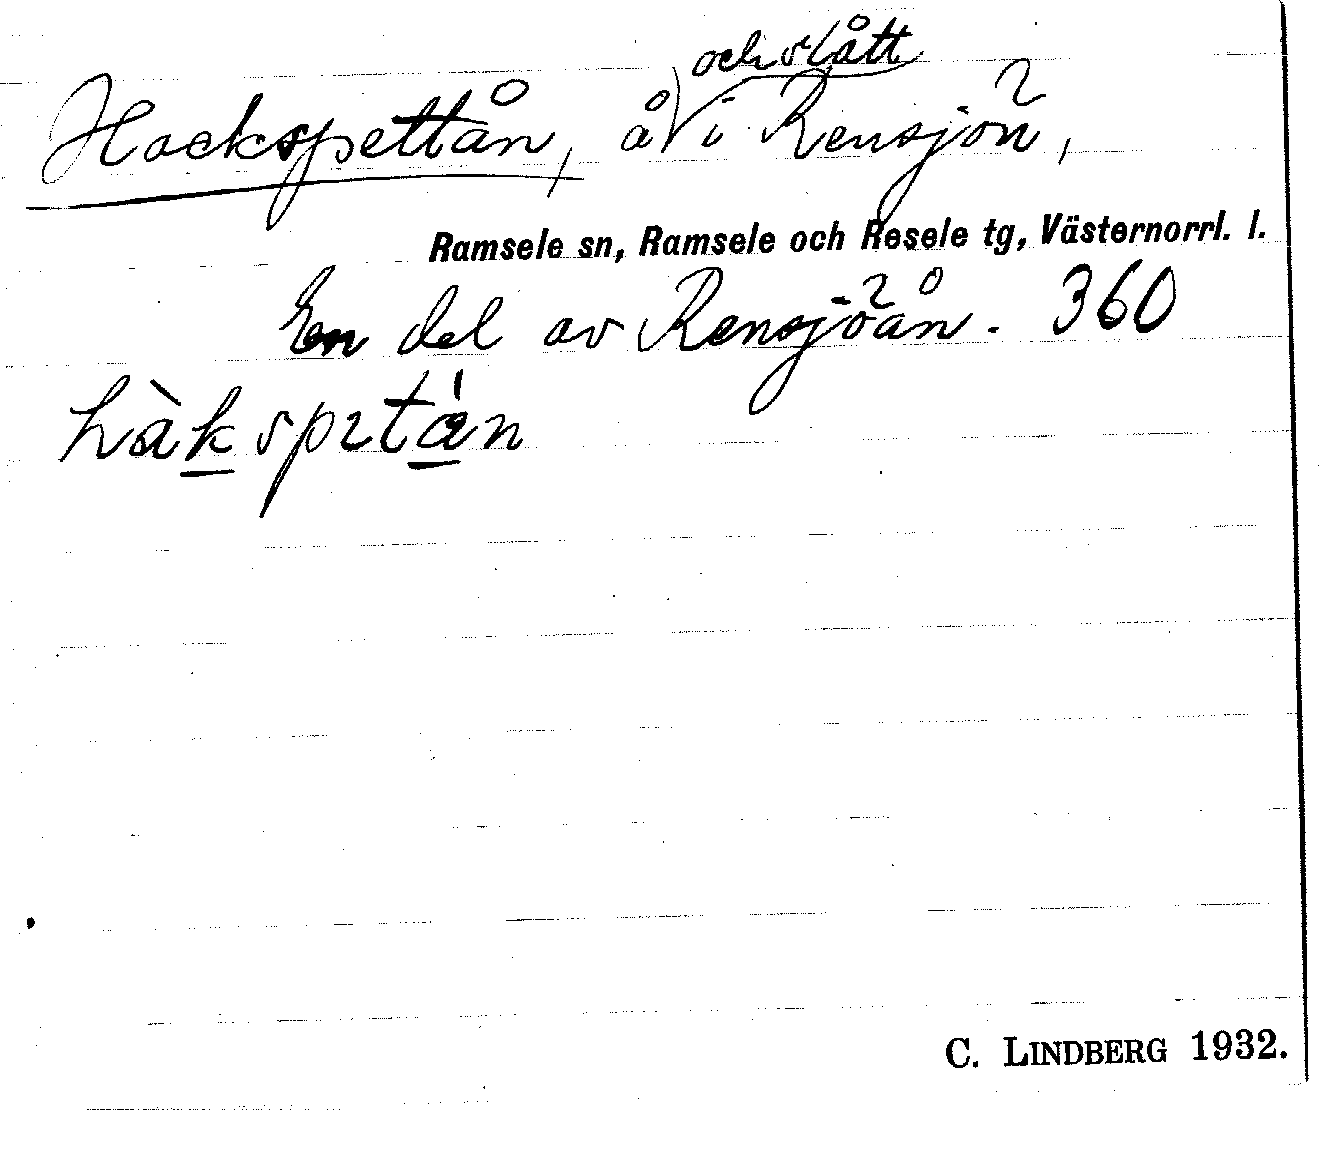 och slått
Hackspettån, å i Rensjön,
Ramsele sn, Ramsele och Resele tg, Västernorrl. l.
En del av Rensjöån. 360
hàkspɪtán
C. LINDBERG 1932.